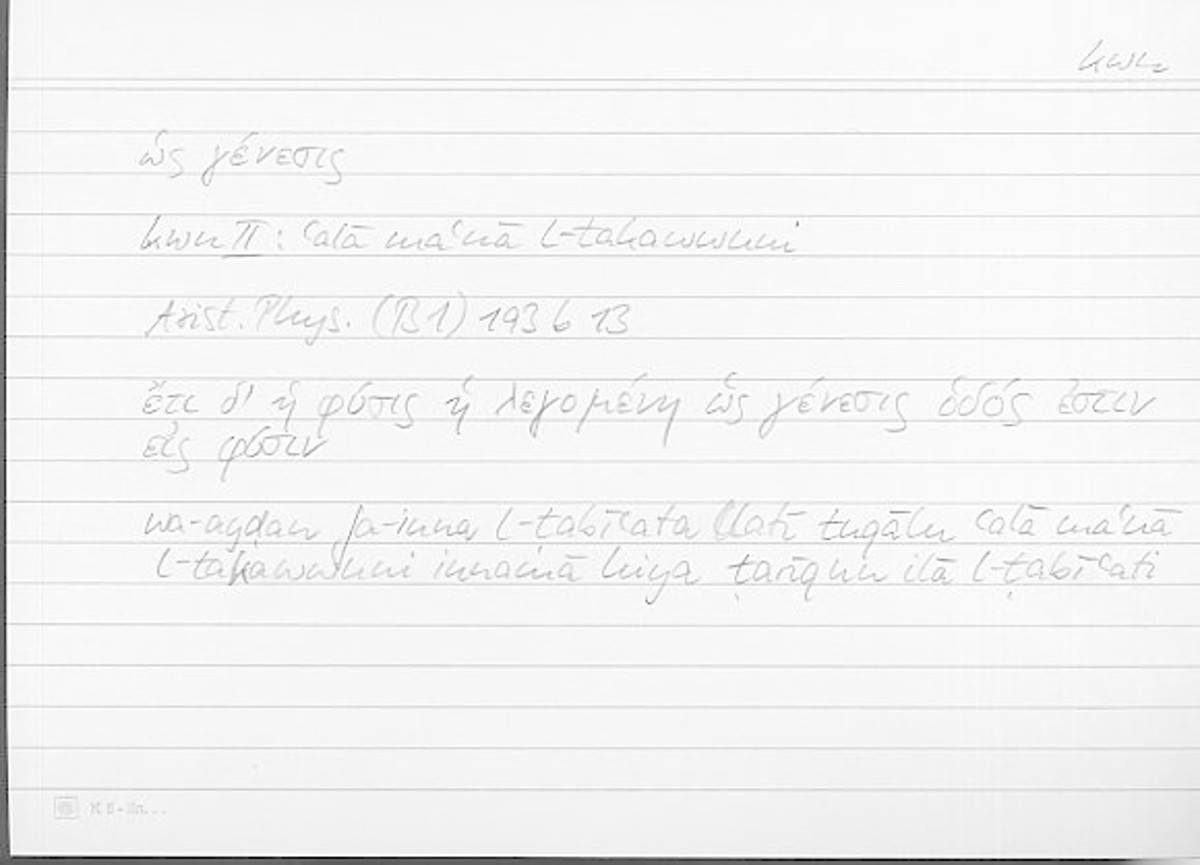 kwn
ὡς γένεσις
kwn II : ʿalā maʿnā l-takawwuni
Arist. Phys. (B1) 193 b 13
ἔτι δ' ἡ φύσις ἡ λεγομένη ὡς γένεσις ὁδός ἐστιν
εἰς φύσιν
wa-ayḍan fa-inna l-ṭabīʿata llatī tuqālu ʿalā maʿnā
l-takawwuni innamā hiya ṭarīqun ilā l-ṭabīʿati